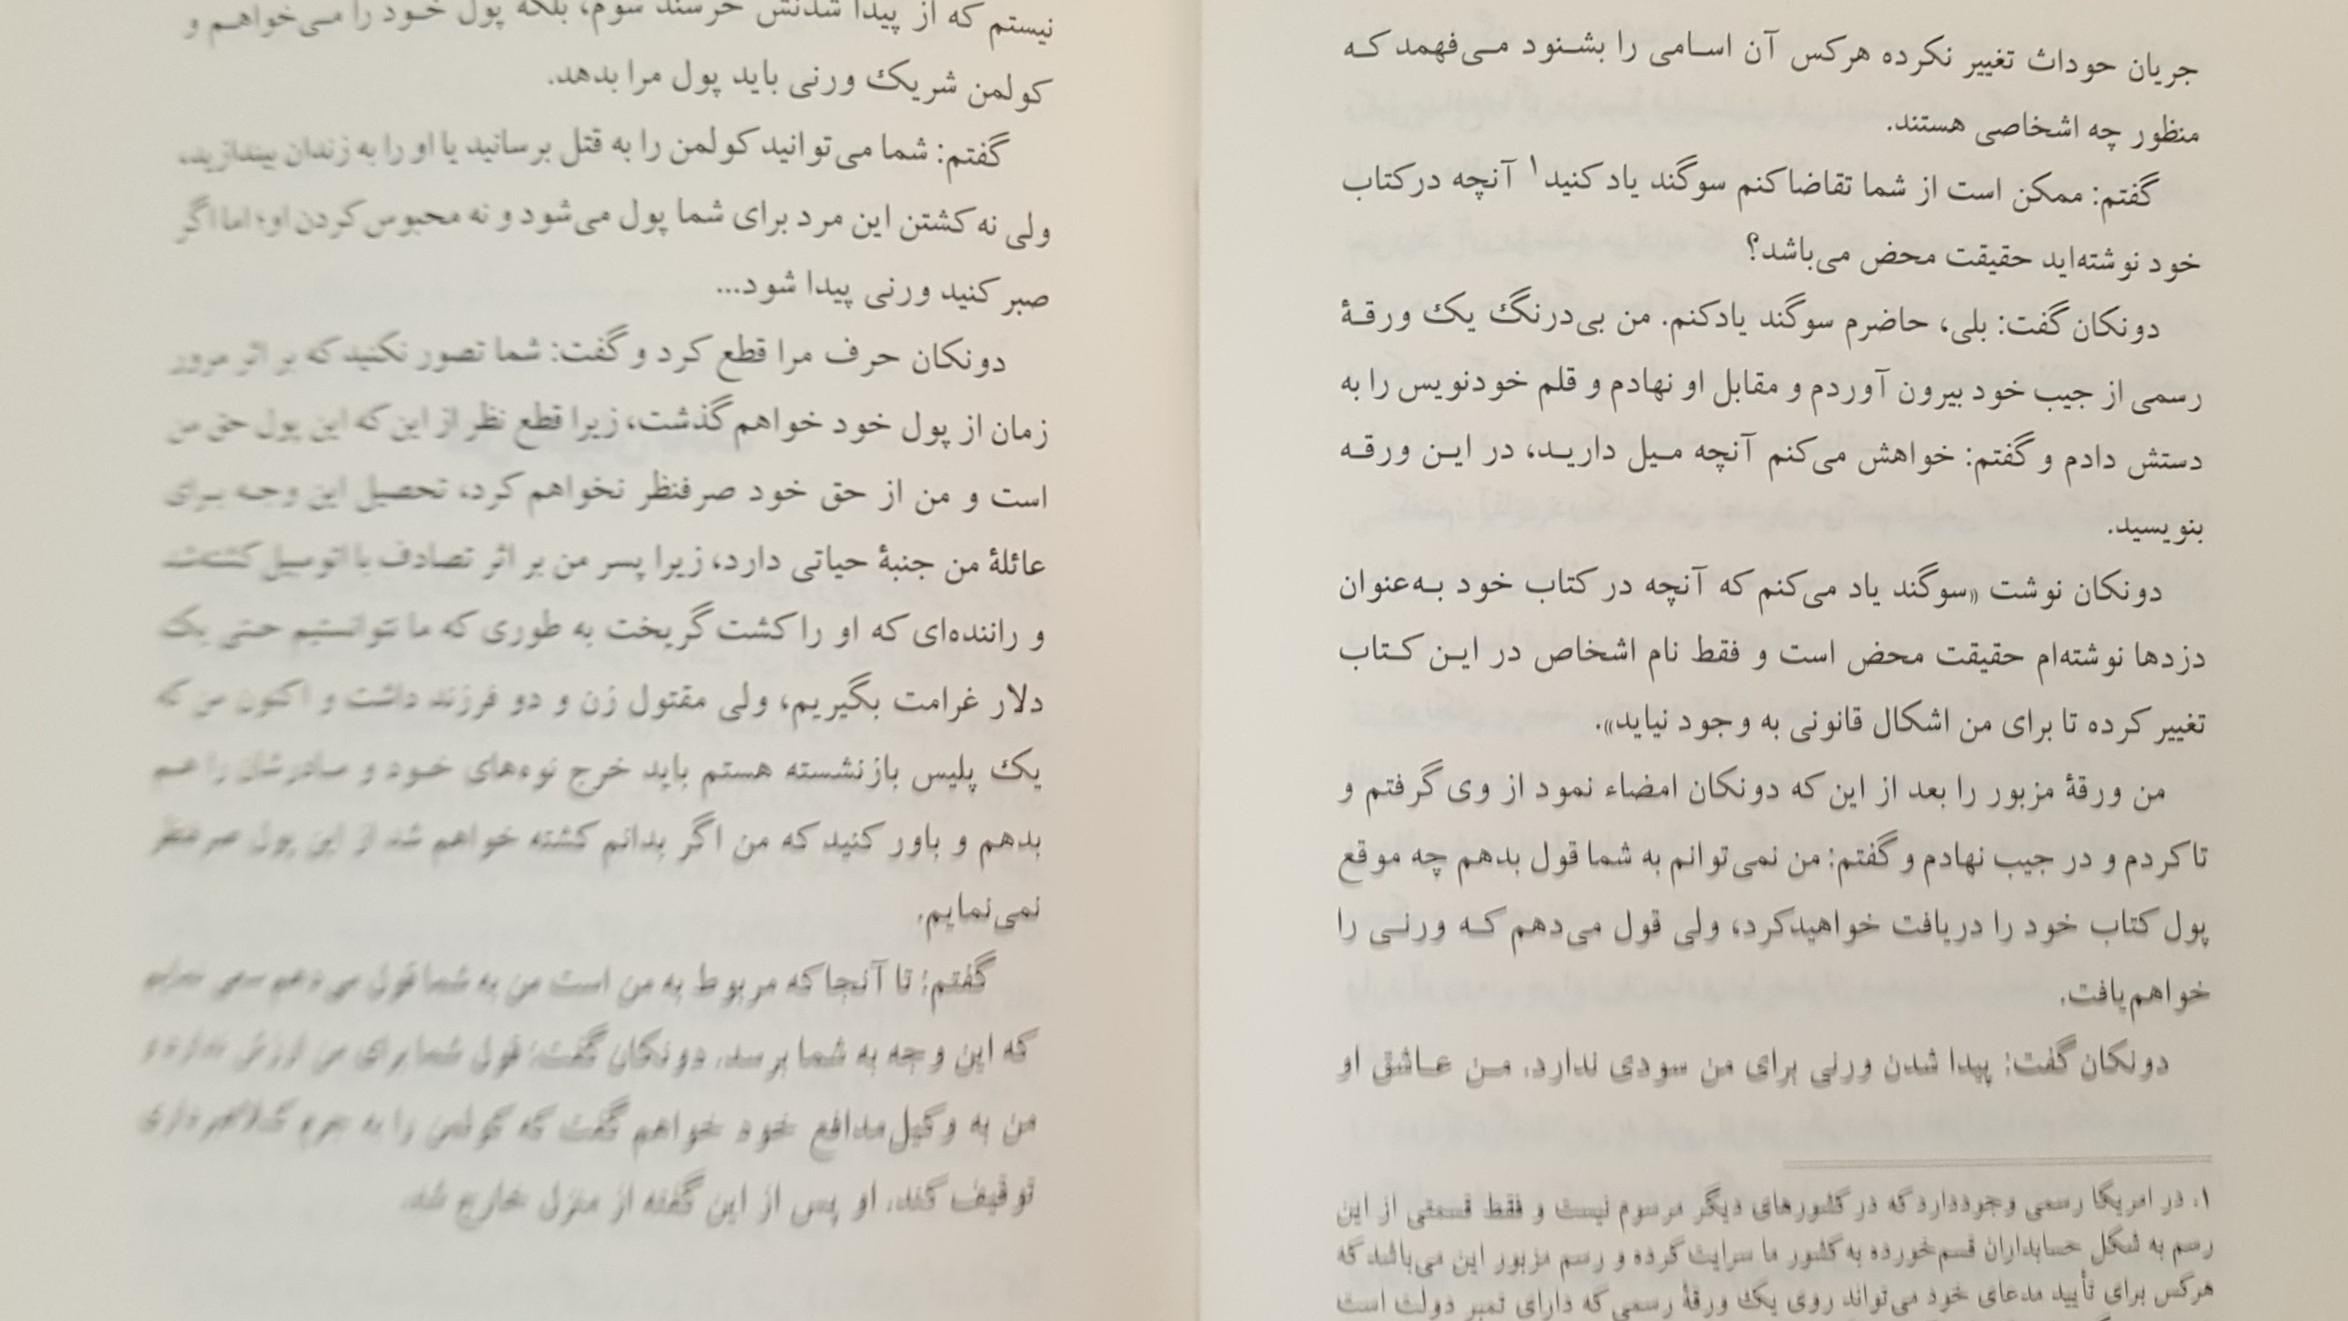 جریان حوداث تغییر نکرده هرکس آن اسامی را بشنود می‌فهمد که
منظور چه اشخاصی هستند.
گفتم: ممکن است از شما تقاضا کنم سوگند یاد کنید۱ آنچه در کتاب
خود نوشته‌اید حقیقت محض می‌باشد؟
دونکان گفت: بلی، حاضرم سوگند یادکنم. من بی‌درنگ یک ورقهٔ
رسمی از جیب خود بیرون آوردم و مقابل او نهادم و قلم خودنویس را به
دستش دادم و گفتم: خواهش می‌کنم آنچه میل دارید، در این ورقه
بنویسید.
دونکان نوشت «سوگند یاد می‌کنم که آنچه در کتاب خود به‌عنوان
دزدها نوشته‌ام حقیقت محض است و فقط نام اشخاص در این کتاب
تغییر کرده تا برای من اشکال قانونی به وجود نیاید».
من ورقهٔ مزبور را بعد از این که دونکان امضاء نمود از وی گرفتم و
تا کردم و در جیب نهادم و گفتم: من نمی‌توانم به شما قول بدهم چه موقع
پول کتاب خود را دریافت خواهیدکرد، ولی قول می‌دهم که ورنی را
خواهم‌یافت.
دونکان گفت: پیدا شدن ورنی برای من سودی ندارد. من عاشق او
۱. در امریکا رسمی وجوددارد که در کشورهای دیگر مرسوم نیست و فقط قسمتی از این
رسم به شکل حسابداران قسم‌خورده به کشور ما سرایت کرده و رسم مزبور این می‌باشد که
هرکس برای تأیید مدعای خود می‌تواند روی یک ورقهٔ رسمی که دارای تمبر دولت است
نیستم که از پیدا شدنش خرسند شوم، بلکه پول خود را می‌خواهم و
کولمن شریک ورنی باید پول مرا بدهد.
گفتم: شما می‌توانید کولمن را به قتل برسانید یا او را به زندان بیندازید،
ولی نه کشتن این مرد برای شما پول می‌شود و نه محبوس کردن او؛ اما اگر
صبر کنید ورنی پیدا شود...
دونکان حرف مرا قطع کرد و گفت: شما تصور نکنید که بر اثر مرور
زمان از پول خود خواهم گذشت، زیرا قطع نظر از این که این پول حق من
است و من از حق خود صرفنظر نخواهم کرد، تحصیل این وجه برای
عائلهٔ من جنبهٔ حیاتی دارد، زیرا پسر من بر اثر تصادف با اتومبیل کشته‌شد
و راننده‌ای که او را کشت گریخت به طوری که ما نتوانستیم حتی یک
دلار غرامت بگیریم، ولی مقتول زن و دو فرزند داشت و اکنون من که
یک پلیس بازنشسته هستم باید خرج نوه‌های خود و مادرشان را هم
بدهم و باور کنید که من اگر بدانم کشته خواهم شد از این پول صرفنظر
نمی‌نمایم.
گفتم: تا آنجا که مربوط به من است من به شما قول می‌دهم سعی نمایم
که این وجه به شما برسد. دونکان گفت: قول شما برای من ارزش ندارد و
من به وکیل‌مدافع خود خواهم گفت که کولمن را به جرم کلاهبرداری
توقیف کند. او پس از این گفته از منزل خارج شد.